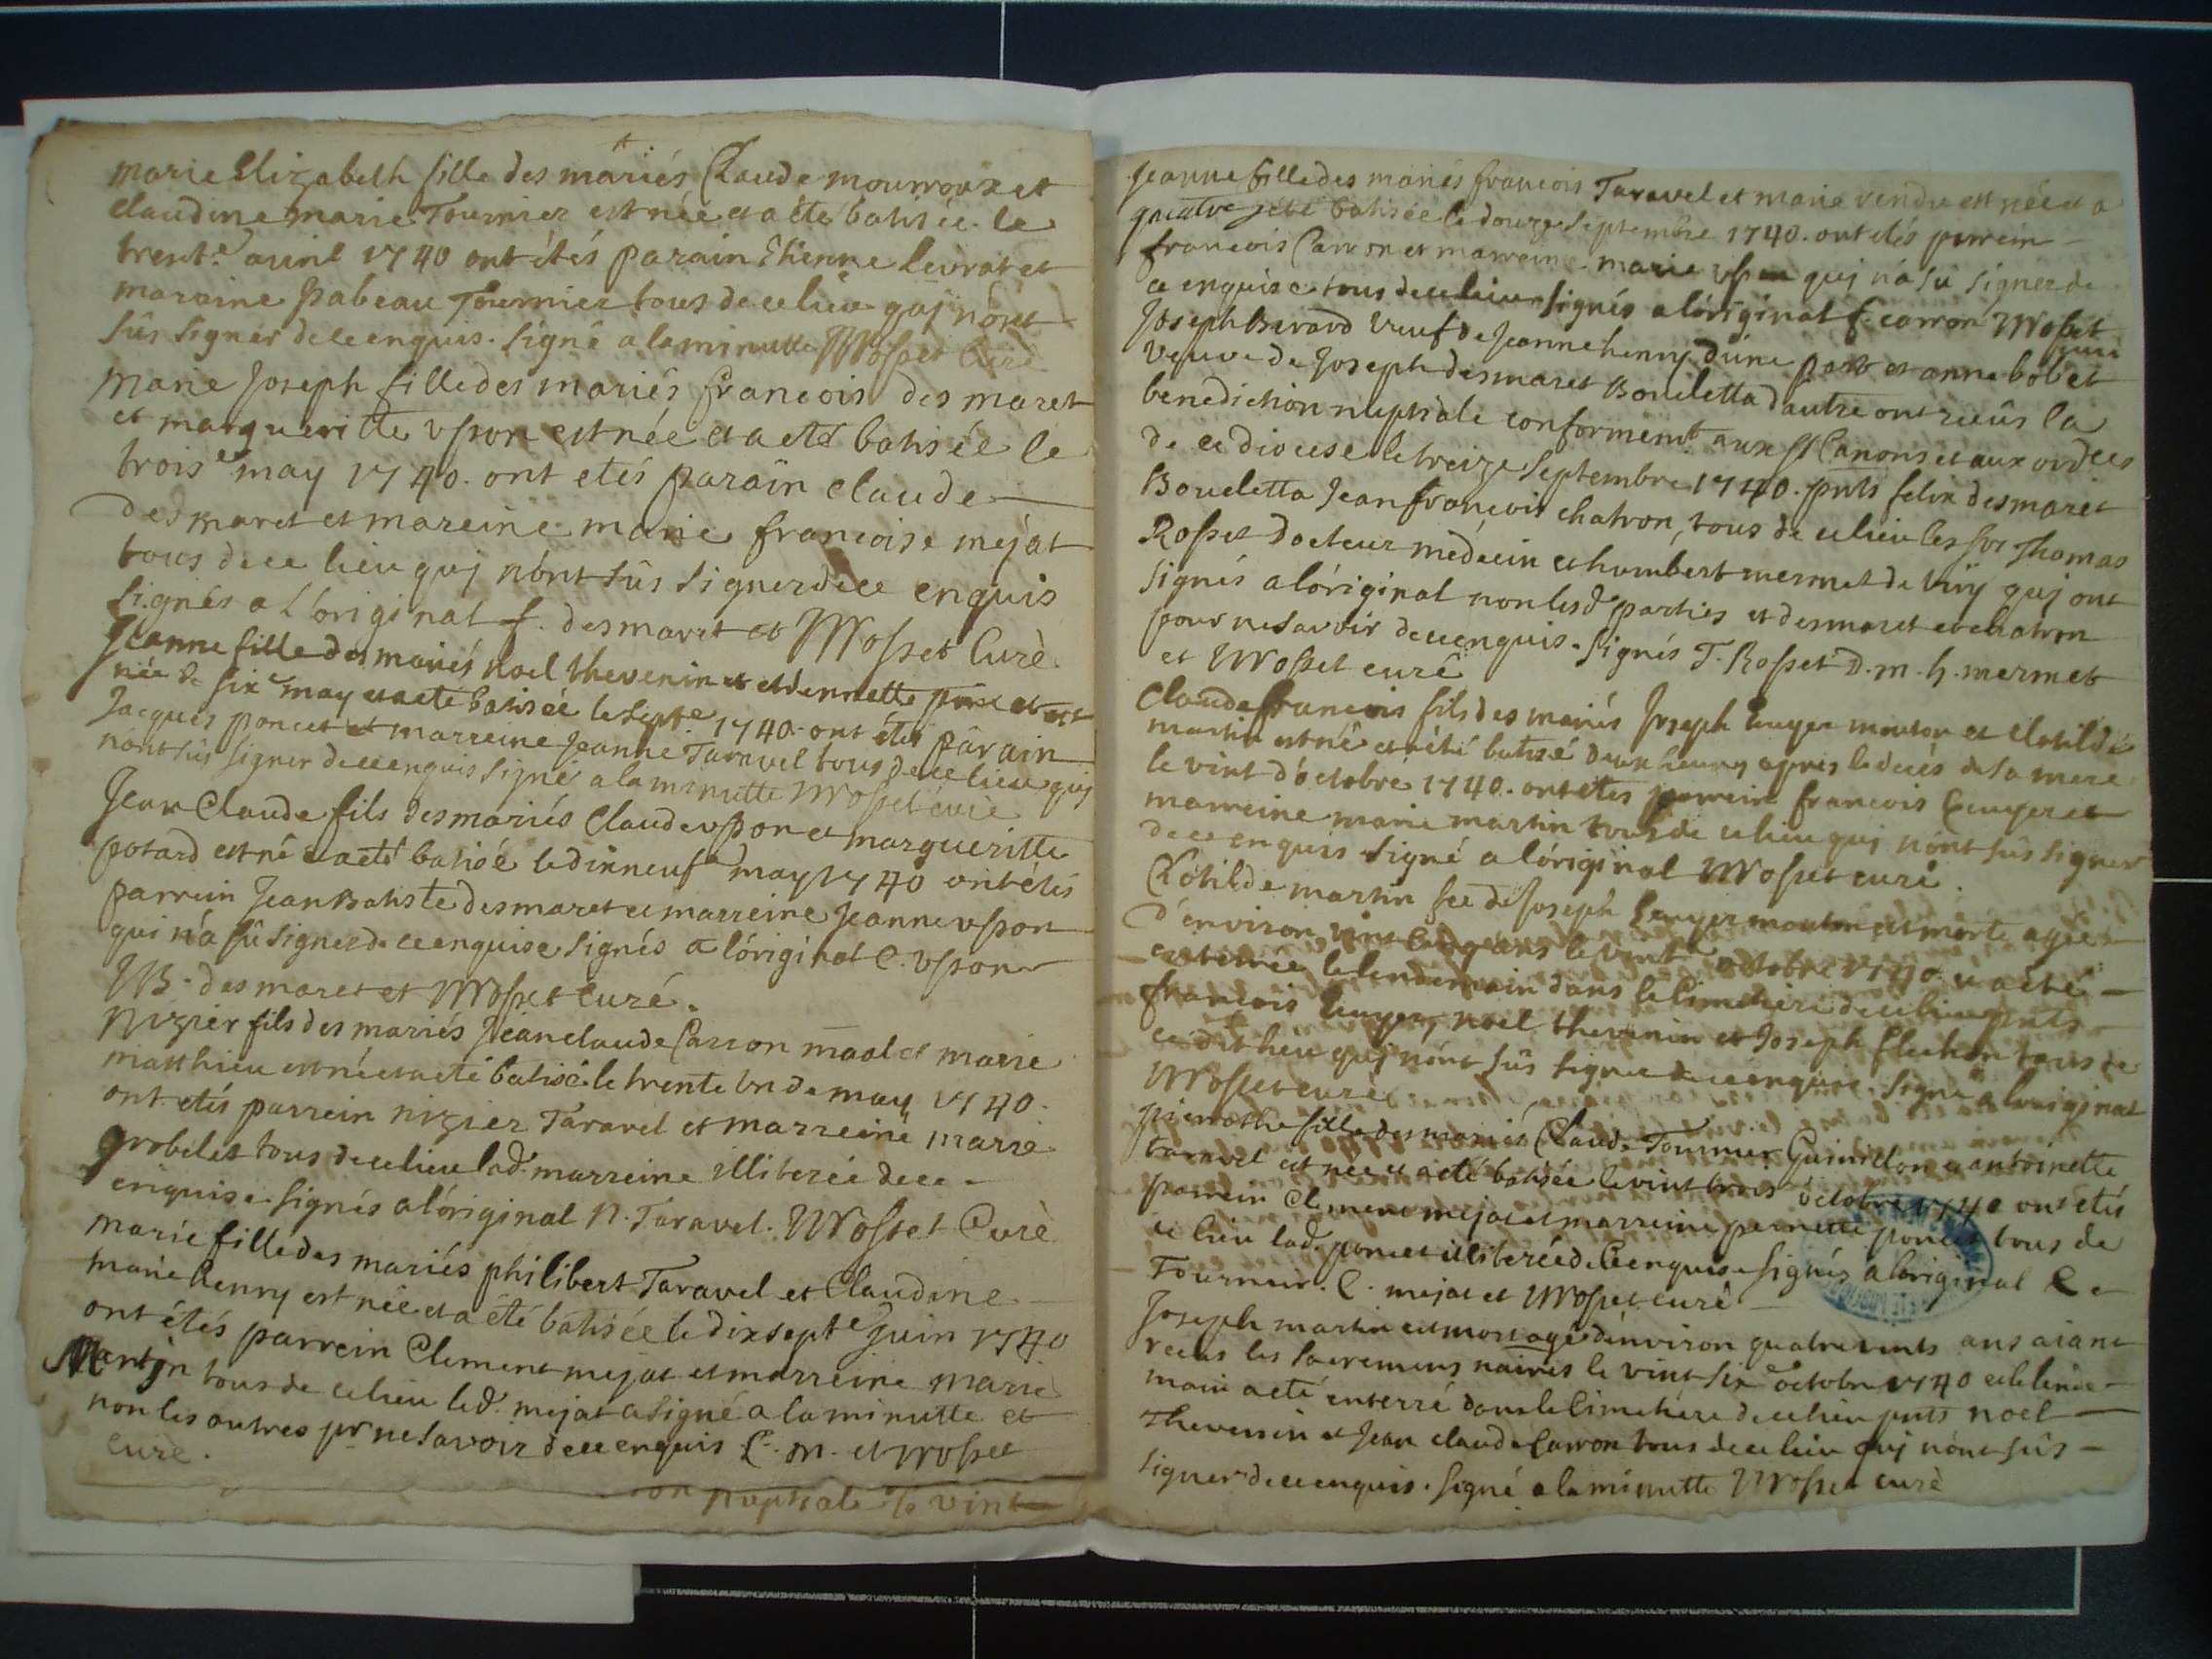 marie Elizabeth fille des mariés Claude mourroux et
claudine marie Tournier est née et a été batisée le
trent.e avril 1740 ont étés parain Etienne levrat et
maraine Isabeau Tournier tous de ce lieu quj n'ont
sûs signer de ce enquis. signé a la minutte Mosset Curé
Marie Joseph fille des mariés francois des maret
et margueritte uſson est née et a eté batisée le
troise may 1740. ont etés parain claude
desmaret et mareine marie francoise mejat
tous de ce lieu quj n'ont sûs signer de ce enquis
signés a l'original f. desmaret et Mosset Curè.
Jeanne fille des mariés noel thevenin et et pernette poncet est
née le sixe may et a eté batisée le septe 1740. ont étés parain
Jacques poncet et marreine Jeanne Taravel tous de ce lieu quj
n'ont sûs signer de ce enquis signé a la minutte Mosset curè
Jean Claude fils des mariés Claude uſson et margueritte
potard est né et a eté batisé le dixneufe may 1740 ont étés
parrein Jean Batiste desmaret et marreine Jeanne uſson
qui n'a sû signer de ce enquise signés a l'original C. uſson
JB. desmaret et Mosset Curé.
Nizier fils des mariés Jean claude Carron maal et marie
matthieu est né et a eté batisé le trente un de may 1740.
ont etés parrein nizier Taravel et marreine marie
grobelet tous de ce lieu lad. marreine illiterée de ce
enquise. signés a l'original N. Taravel. Mosset Curè
marie fille des mariés philibert Taravel et Claudine
marie henry est née et a été batisée le dixsepte Juin 1740
ont étés parrein Clement mejat et marreine marie
Martin tous de ce lieu led. mejat a signé a la minutte et
non les autres pr ne savoir de ce enquis C. m. et Mosset
Curè.
on nuptiale le vint
Jeanne fille des mariés francois Taravel et marie vendu est née et a
eté batisée le douze septembre 1740. ont etés parrein
francois Carron et marreine marie uſson quj n'a sû signer de
ce enquise tous de ce lieu signés a l'original f. carron Mosset
curé
Joseph Berard veuf de Jeanne henry d'une part et anne bobet
veuve de Joseph desmaret Boucletta d'autre ont receûs la
benediction nuptiale conformemt. aux st Canons et aux ordces
de ce diocese le treize septembre 1740. pnts felix desmaret
Boucletta Jean francois chatron, tous de ce lieu les srs Thomas
Rosset docteur médecin et humbert mermet de viry quj ont
signés a l'original non lesd. parties et desmaret et chatron
pour ne savoir de ce enquis. signés T. Rosset D. m. h. mermet
et Mosset curé
Claude francois fils des mariés Joseph Cuyer mouton et Clotilde
martin est né et a été batisé deux heures apres le decés de sa mere
le vint d'octobre 1740. ont etés parrein francois Cuyer et
marreine marie martin tous de ce lieu quj n'ont sûs signer
de ce enquis signé a l'original Mosset curé.
Clotilde martin fee de Joseph Cuyer mouton est morte agée
d'environ vint cinq ans le vinte octobre 1740. et a eté
enterrée le lendemain dans le Cimetiere de ce lieu pnts
francois Cuyer, noel thevenin et Joseph flechon tous de
ce dit lieu quj n'ont sûs signer de ce enquise. signé a l'original
Mosset curé
pierrothe fille des mariés Claude Tournier Guinillon et antoinette
taravel est née et a eté batisée le vint trois octobre 1740 ont etés
parrein Clement mejat et marreine pernette poncet tous de
ce lieu lad. poncet illiterée de ce enquise signés a l'original C
Tournier. C. mejat et Mosset curè
Joseph martin est mort agé d'environ quatre vints ans aiant
receus les sacremens naires le vint sixe octobre 1740 et le lende
main a eté enterré dans le Cimetiére de ce lieu pnts noel
Thevenin et Jean claude Carron tous de ce lieu quj n'ont sûs
signer de ce enquis. signé a la minutte Mosset curè